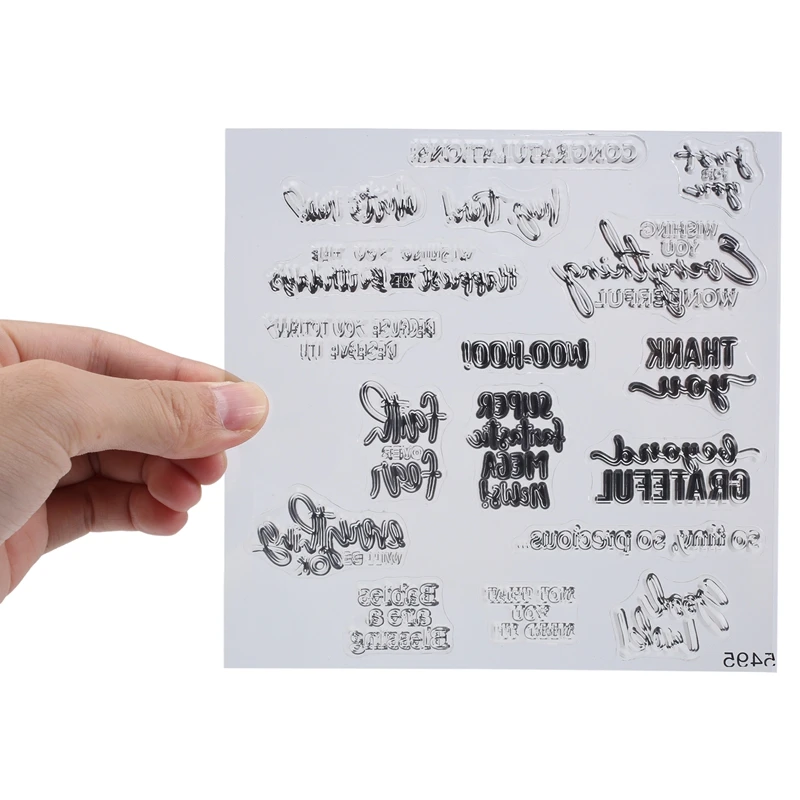 CONGRATULATIONS!
just
FOR
you
what's new?
hug time!
WISHING
YOU
Everything
WONDERFUL
WISHING YOU THE
Happiest OF Birthdays
BECAUSE YOU TOTALLY
DESERVE IT!
WOO-HOO!
THANK
you
faith
OVER
fear
SUPER
fantastic
MEGA
news!
beyond
GRATEFUL
everything
WILL BE
OK
so tiny, so precious...
Babies
are a
Blessing
NOT THAT
YOU
NEED IT!
Good
Luck!
5495